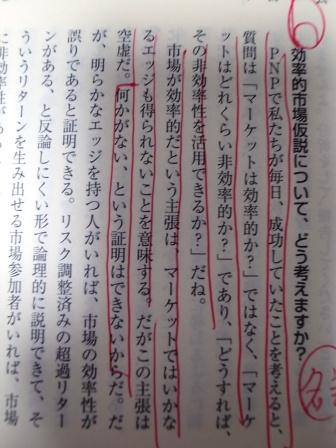 効率的市場仮説について、どう考えますか?
PNPで私たちが毎日、成功していたことを考えると、
質問は「マーケットは効率的か?」ではなく、「マーケ
ットはどれくらい非効率的か?」であり、「どうすれば、
その非効率性を活用できるか?」だね。
市場が効率的だという主張は、マーケットではいかな
るエッジも得られないことを意味する。だがこの主張は
空虚だ。何かがない、という証明はできないからだ。だ
が、明らかなエッジを持つ人がいれば、市場の効率性が
誤りであると証明できる。リスク調整済みの超過リター
ンがある、と反論しにくい形で論理的に説明できて、そ
ういうリターンを生み出せる市場参加者がいれば、市場
に非効率性があ